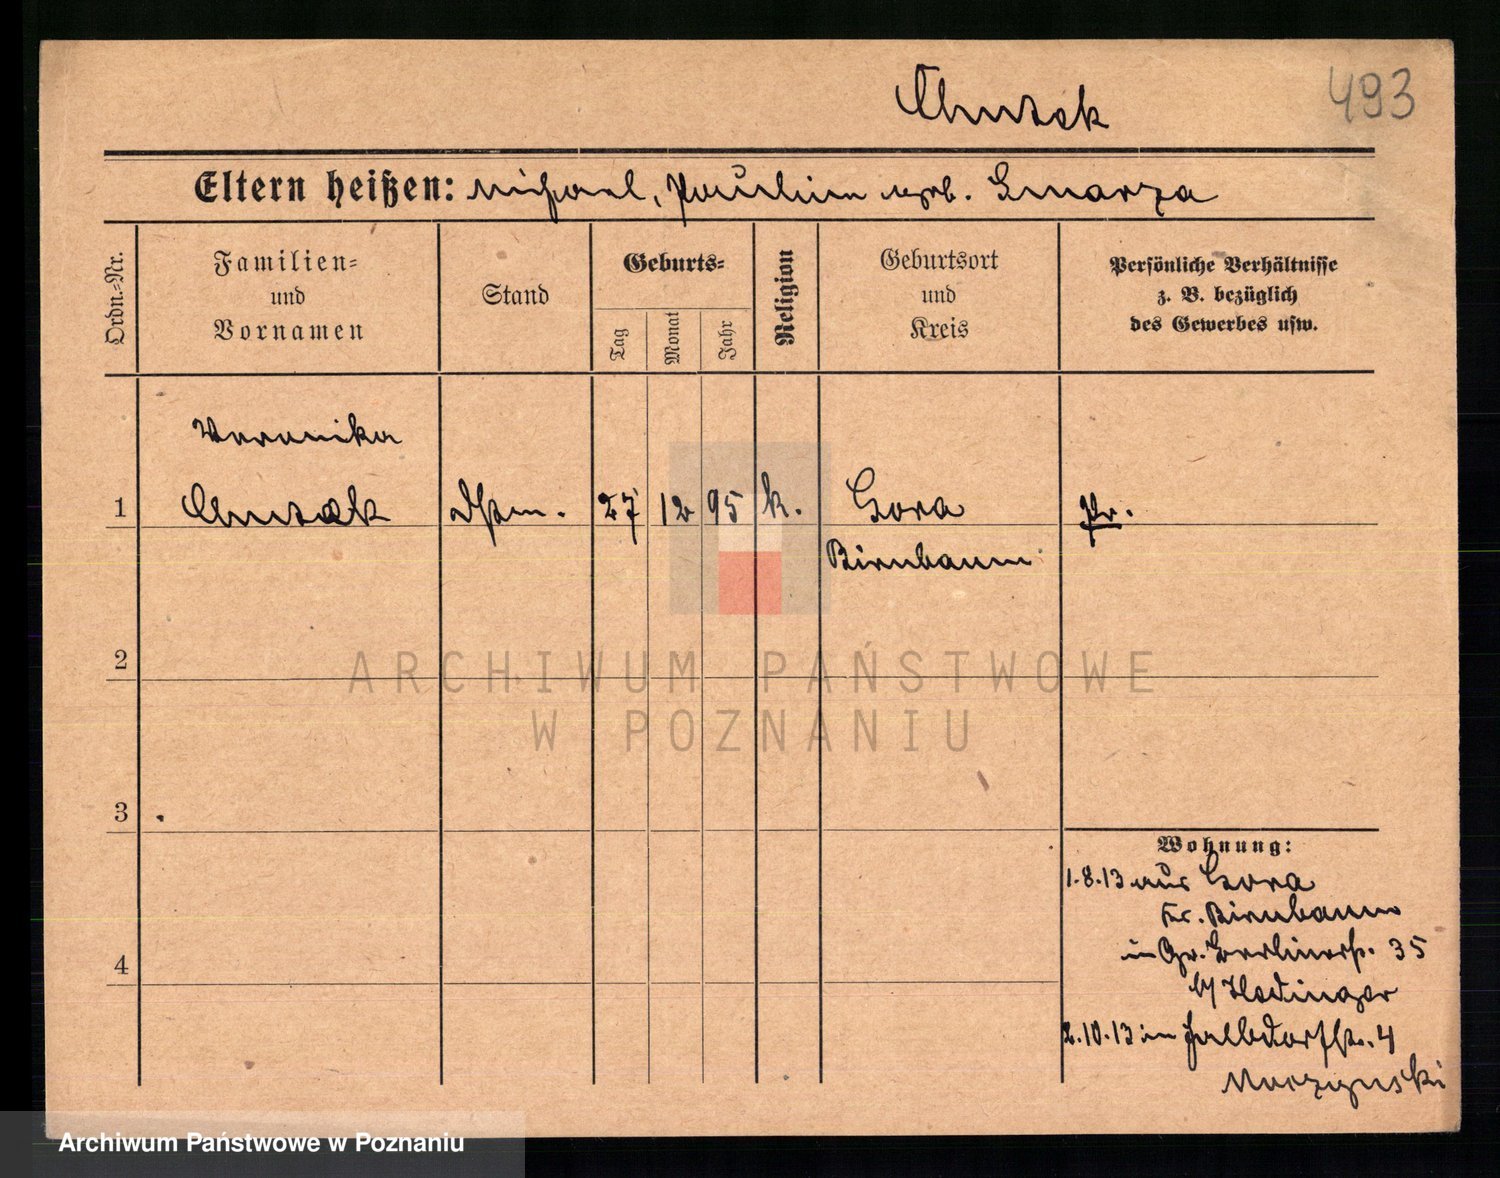 Chudak
493
Eltern heißen: Michael, Paulina geb. Gmarza
Ordn.-Nr.
Familien-
und
Vornamen
Stand
Geburts-
Tag
Monat
Jahr
Religion
Geburtsort
und
Kreis
Persönliche Verhältnisse
z. B. bezüglich
des Gewerbes usw.
Veronika
1
27 12 95 k. Gora Pr.
Birnbaum
2
ARCHIWUM PAŃSTWOWE
W POZNANIU
3
Wohnung:
1.8.13 aus Gora
Kr. Birnbaum
in Gr. Berlinerstr. 35
b/
4
2.10.13 in Halbdorfstr. 4
Archiwum Państwowe w Poznaniu